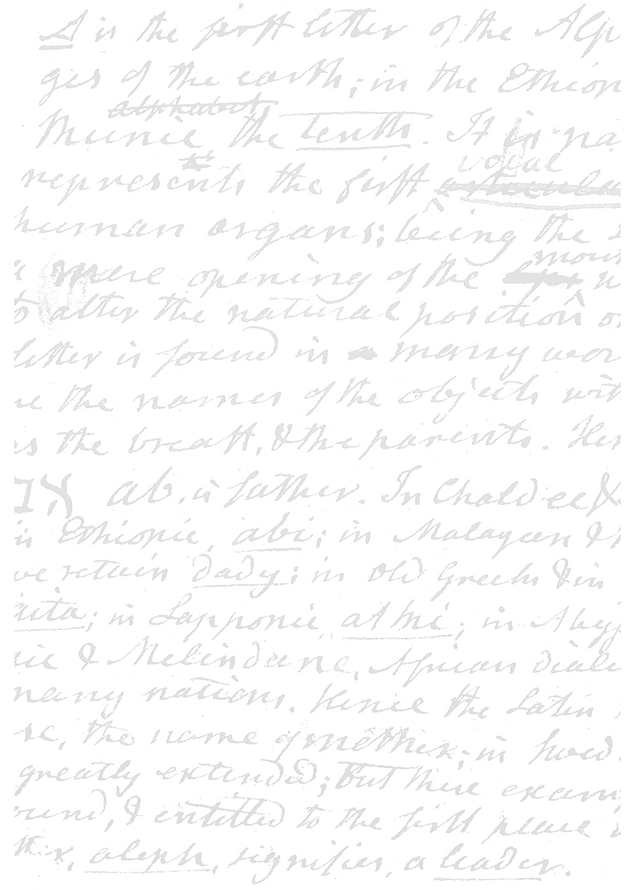 A is the first letter of the Alp
ges of the earth; in the Ethiop
alphabet
Munic the tenth. It is na
vocal
represents the first articula
human organs; being the
a mere opening of the mout
to alter the natural position o
letter is found in a many wor
the names of the objects wit
as the breast, & the parents. Hen
אב ab, is father. In Chaldee &
in Ethiopic, abi; in Malayan &
we retain dady; in old Greek & in
in Lapponic, atki; in Abys
& Melindane, African diale
many nations. Hence the Latin
se, the name of mother; in Swed
greatly extended; But these exam
ound, & entitled to the first place
aleph, signifies, a leader.